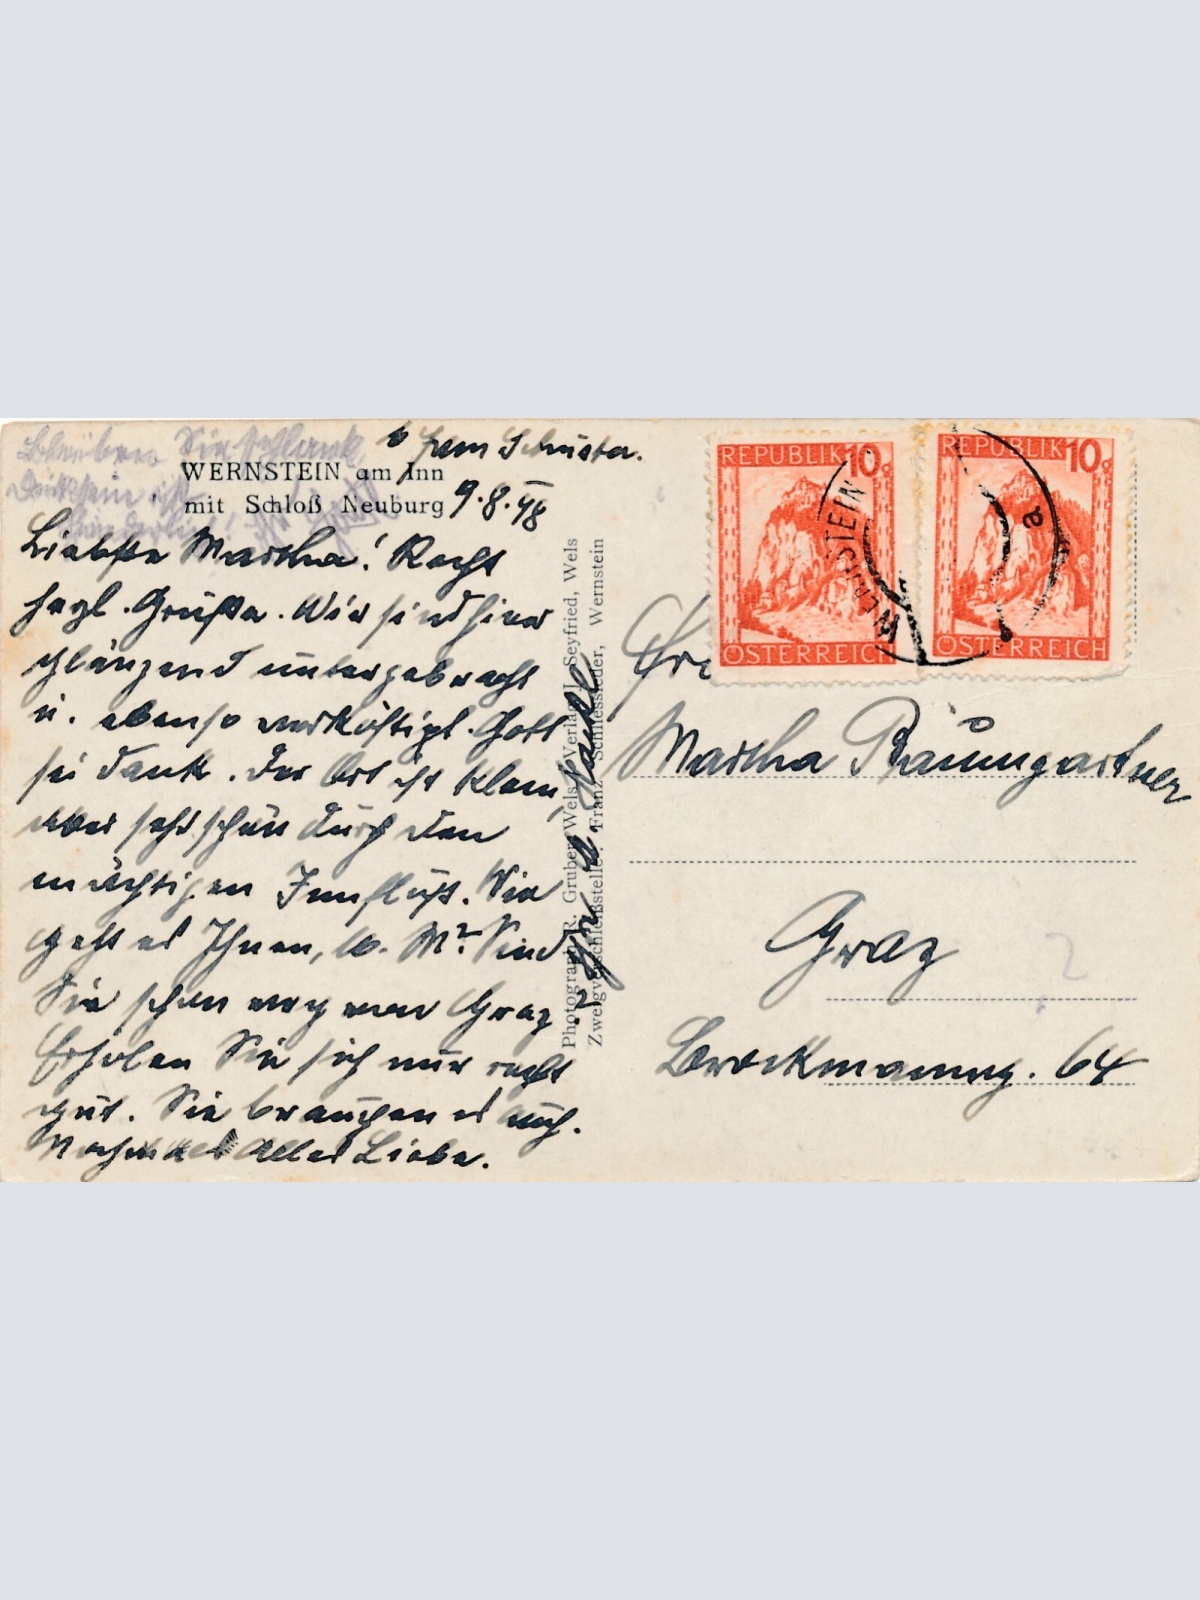 Bleiben Sie schlank,
WERNSTEIN am Inn
mit Schloß Neuburg
9.8.48
Liebste Martha! Recht
herzl. Grüße. Wir sind hier
glänzend untergebracht
u. ebenso verköstigt. Gott
sei Dank. Der Ort ist klein,
aber sehr schön durch den
mächtigen Innfluß. Wie
geht es Ihnen, lb. M? Sind
Sie schon weg von Graz?
Erholen Sie sich nur recht
gut. Sie brauchen es auch.
Nochmals Alles Liebe.
Photograph R. Gruber, Wels, Verlag J. Seyfried, Wels
Zweigverschleißstelle: Franz Schliessleder, Wernstein
REPUBLIK 10
ÖSTERREICH
REPUBLIK 10
ÖSTERREICH
WERNSTEIN
a
Martha Baumgartner
Graz
Brockmanng. 64
2